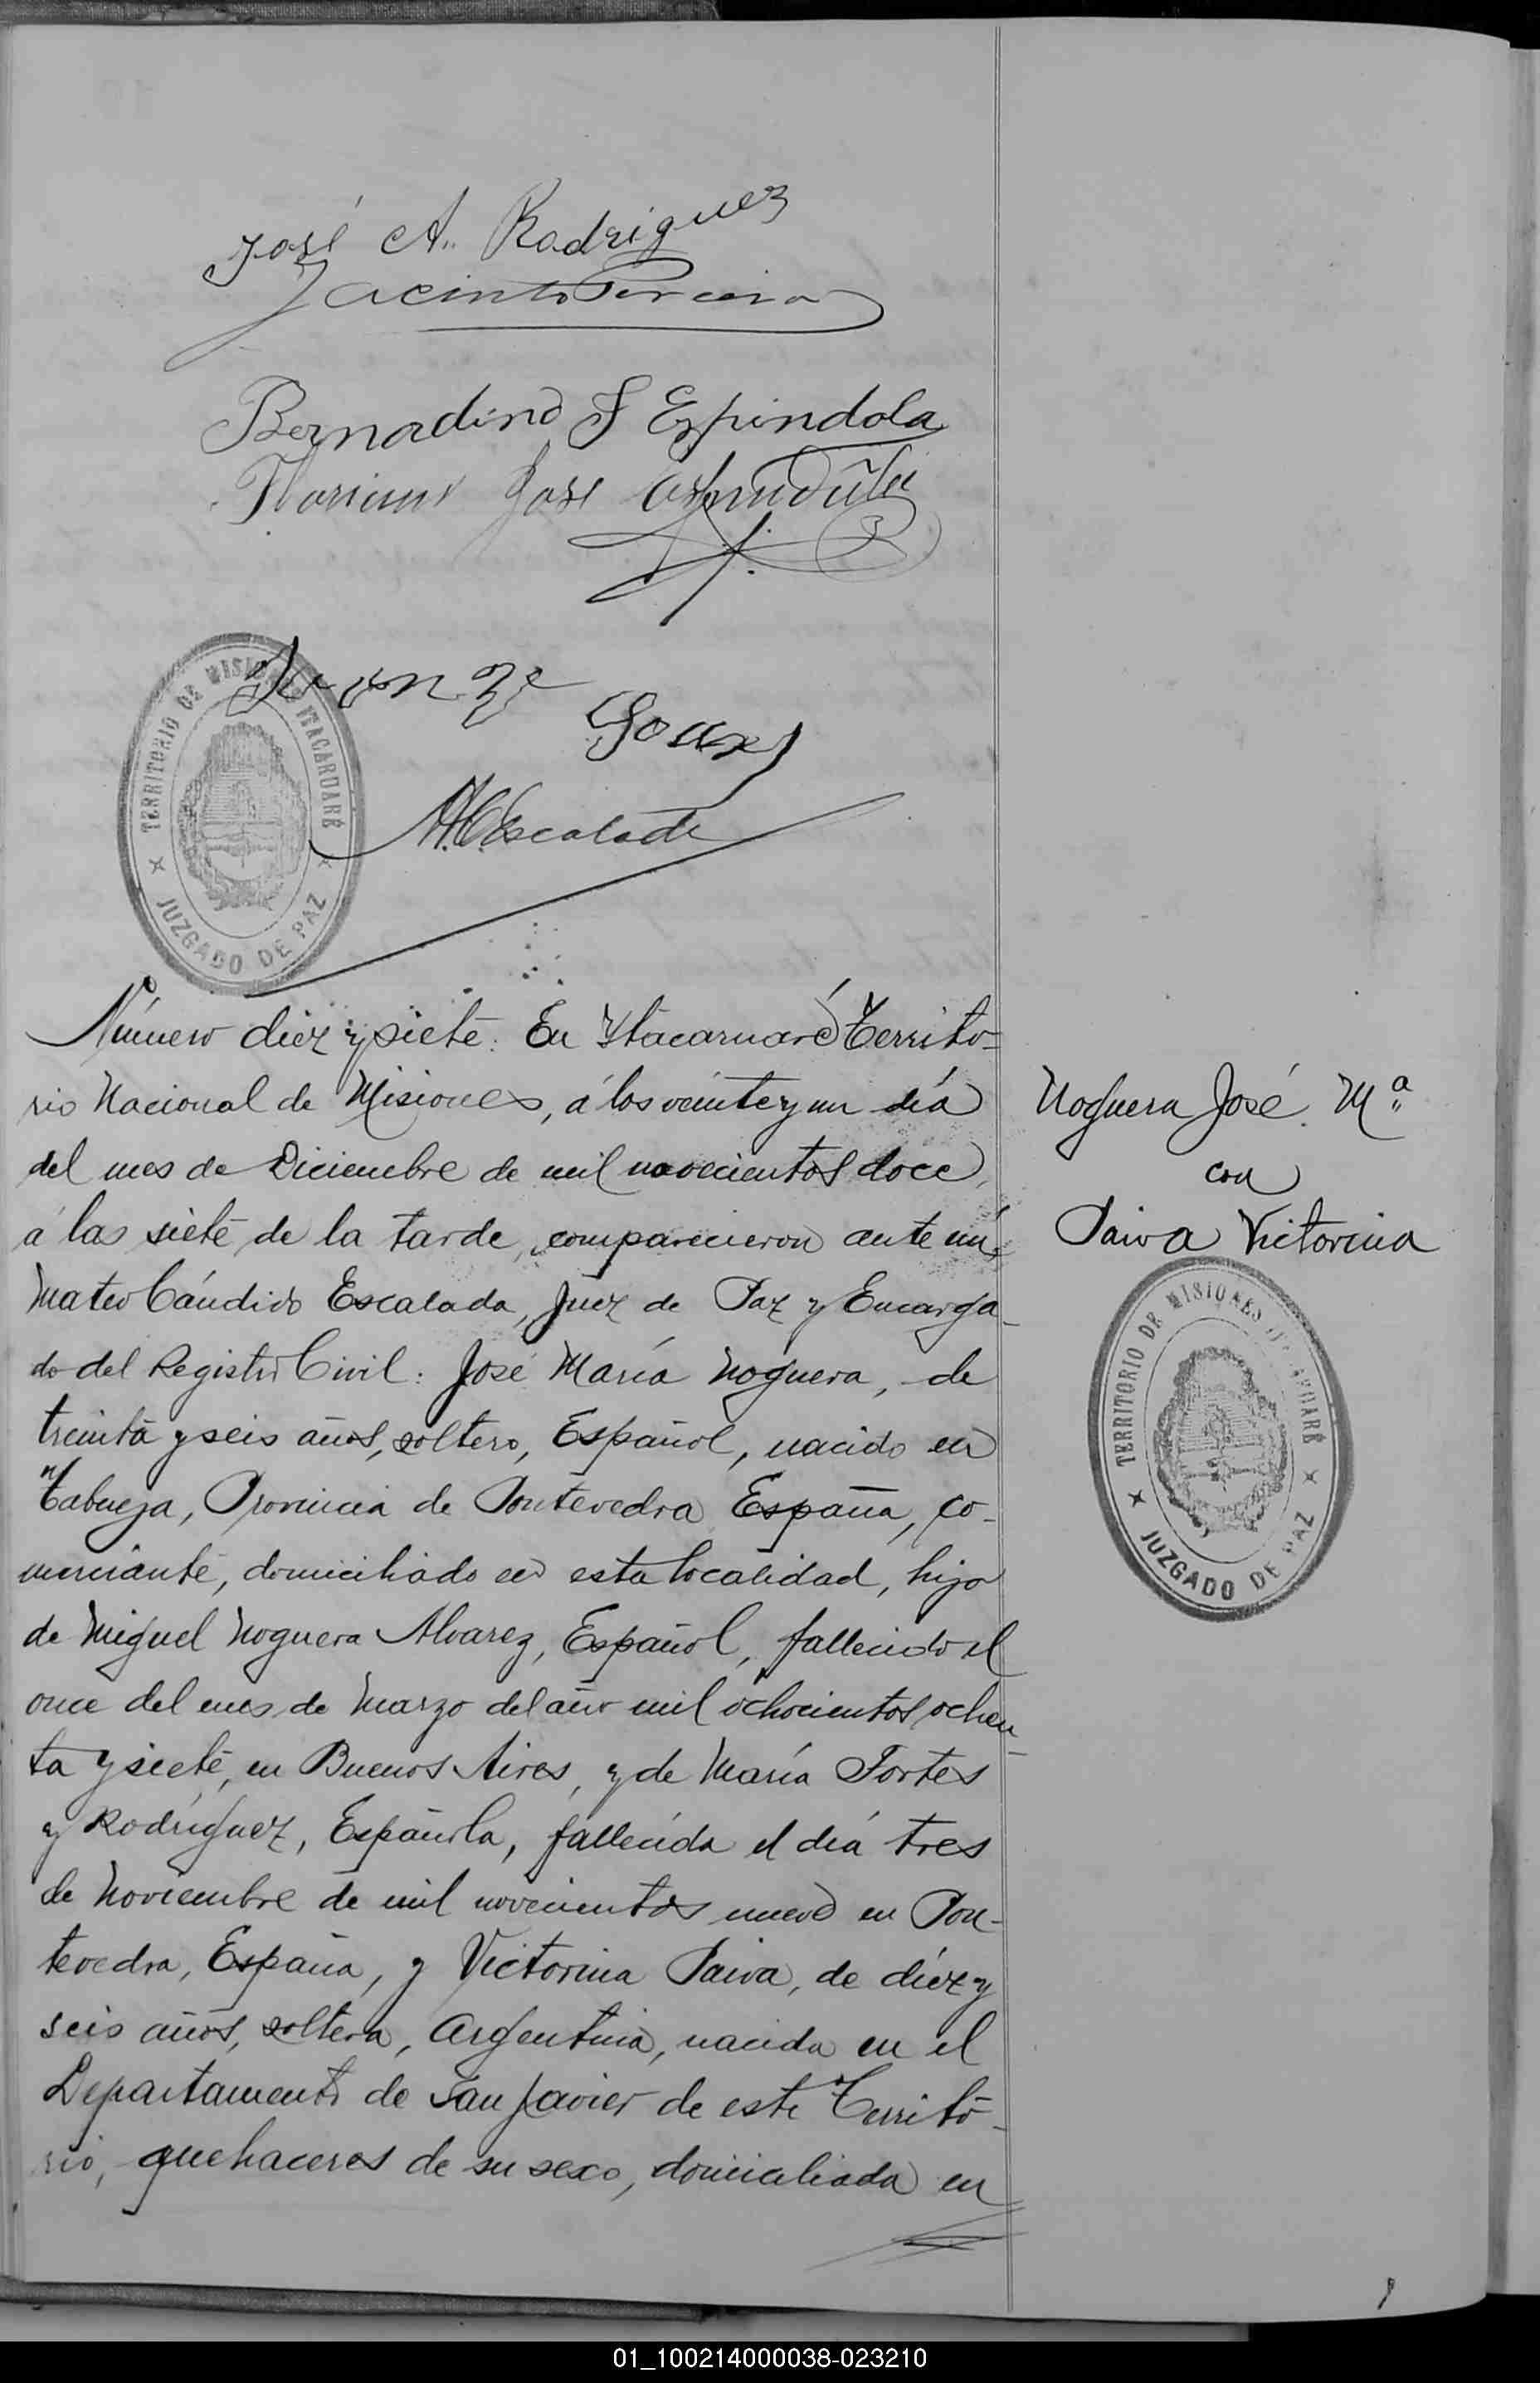 José A. Rodriguez
Jacinto Pereira
Bernadino F Espindola
José
Juan
Gomez
M.C. Escalada
TERRITORIO DE MISIONES ITACARUARÉ
JUZGADO DE PAZ
Número diez y siete. En Ytacaruaré Territo-
rio Nacional de Misiones, á los veinte y un día
del mes de Diciembre de mil novecientos doce,
a las siete de la tarde, comparecieron ante mí,
Mateo Cándido Escalada, Juez de Paz y Encarga-
do del Registro Civil: José María Noguera, de
treinta y seis años, soltero, Español, nacido en
Tabueja, Provincia de Pontevedra España, co-
merciante, domiciliado en esta localidad, hijo
de Miguel Noguera Alvarez, Español, fallecido el
once del mes de Marzo del año mil ochocientos ochen-
ta y siete, en Buenos Aires, y de María Fortes
y Rodríguez, Española, fallecida el día tres
de Noviembre de mil novecientos nueve en Pon-
tevedra, España, y Victorina Paiva, de diez y
seis años, soltera, Argentina, nacida en el
Departamento de San Javier de este Territo-
rio, quehaceres de su sexo, domicaliada en
Noguera José Mª
con
Paiva Victorina
TERRITORIO DE MISIONES ITACARUARÉ
JUZGADO DE PAZ
01_100214000038-023210